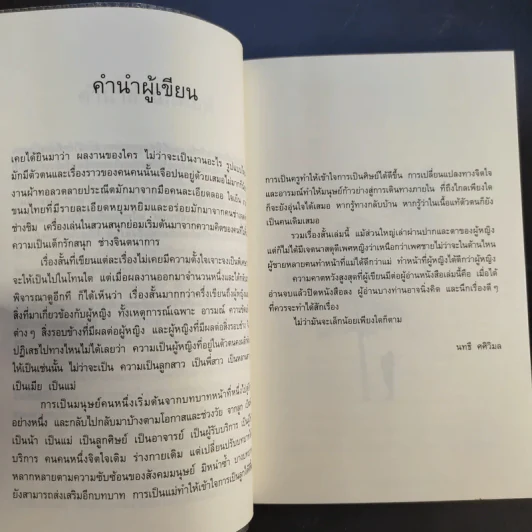 คำนำผู้เขียน
เคยได้ยินมาว่า ผลงานของใคร ไม่ว่าจะเป็นงานอะไร
มักมีตัวตนและเรื่องราวของคนคนนั้นเจือปนอยู่ด้วยเสมอ
งานผ้าทอลวดลายประณีตมักมาจากมือคนละเอียดลออ
ขนมไทยที่มีรายละเอียดหยุมหยิมและอร่อยมักมาจาก
ช่างชิม เครื่องเล่นในสวนสนุกย่อมเริ่มต้นมาจากความคิดของคน
ความเป็นเด็กรักสนุก ช่างจินตนาการ
เรื่องสั้นที่เขียนแต่ละเรื่องไม่เคยมีความตั้งใจเจาะจง
จะให้เป็นไปในโทนใด แต่เมื่อผลงานออกมาจำนวนหนึ่งและได้
พิจารณาดูอีกที ก็ได้เห็นว่า เรื่องสั้นมากกว่าครึ่งเขียนถึง
สิ่งที่มาเกี่ยวข้องกับผู้หญิง ทั้งเหตุการณ์เฉพาะ อารมณ์
ต่างๆ สิ่งรอบข้างที่มีผลต่อผู้หญิง และผู้หญิงที่มีผลต่อสิ่งรอบข้าง
ปฏิเสธไปทางไหนไม่ได้เลยว่า ความเป็นผู้หญิงที่อยู่ในตัวตน
ให้เป็นเช่นนั้น ไม่ว่าจะเป็น ความเป็นลูกสาว เป็นพี่สาว
เป็นเมีย เป็นแม่
การเป็นมนุษย์คนหนึ่งเริ่มต้นจากบทบาทหน้าที่หนึ่ง
อย่างหนึ่ง และกลับไปกลับมาบ้างตามโอกาสและช่วงวัย จากลูก
เป็นน้า เป็นแม่ เป็นลูกศิษย์ เป็นอาจารย์ เป็นผู้รับบริการ
บริการ คนคนหนึ่งจิตใจเดิม ร่างกายเดิม แต่เปลี่ยน
หลากหลายตามความซับซ้อนของสังคมมนุษย์ มีหน้าซ้ำ
ยังสามารถส่งเสริมอีกบทบาท การเป็นแม่ทำให้เข้าใจการเป็นลูก
การเป็นครูทำให้เข้าใจการเป็นศิษย์ได้ดีขึ้น การเปลี่ยนแปลงทางจิตใจ
และอารมณ์ทำให้มนุษย์ก้าวย่างสู่การเดินทางภายใน ที่ถึงไกลเพียงใด
ก็จะยังอุ่นใจได้เสมอ หากรู้ทางกลับบ้าน หากรู้ว่าในเนื้อแท้ตัวตนก็ยัง
เป็นคนเดิมเสมอ
รวมเรื่องสั้นเล่มนี้ แม้ส่วนใหญ่เล่าผ่านปากและตาของผู้หญิง
แต่ก็ไม่ได้มีเจตนาสดุดีเพศหญิงว่าเหนือกว่าเพศชายไม่ว่าจะในด้านไหน
ผู้ชายหลายคนทำหน้าที่แม่ได้ดีกว่าแม่ ทำหน้าที่ผู้หญิงได้ดีกว่าผู้หญิง
ความคาดหวังสูงสุดที่ผู้เขียนมีต่อผู้อ่านหนังสือเล่มนี้คือ เมื่อได้
อ่านจบแล้วปิดหนังสือลง ผู้อ่านบางท่านอาจนิ่งคิด และนึกเรื่องดีๆ
ที่ควรจะทำได้สักเรื่อง
ไม่ว่ามันจะเล็กน้อยเพียงใดก็ตาม
นทธี ศศิวิมล